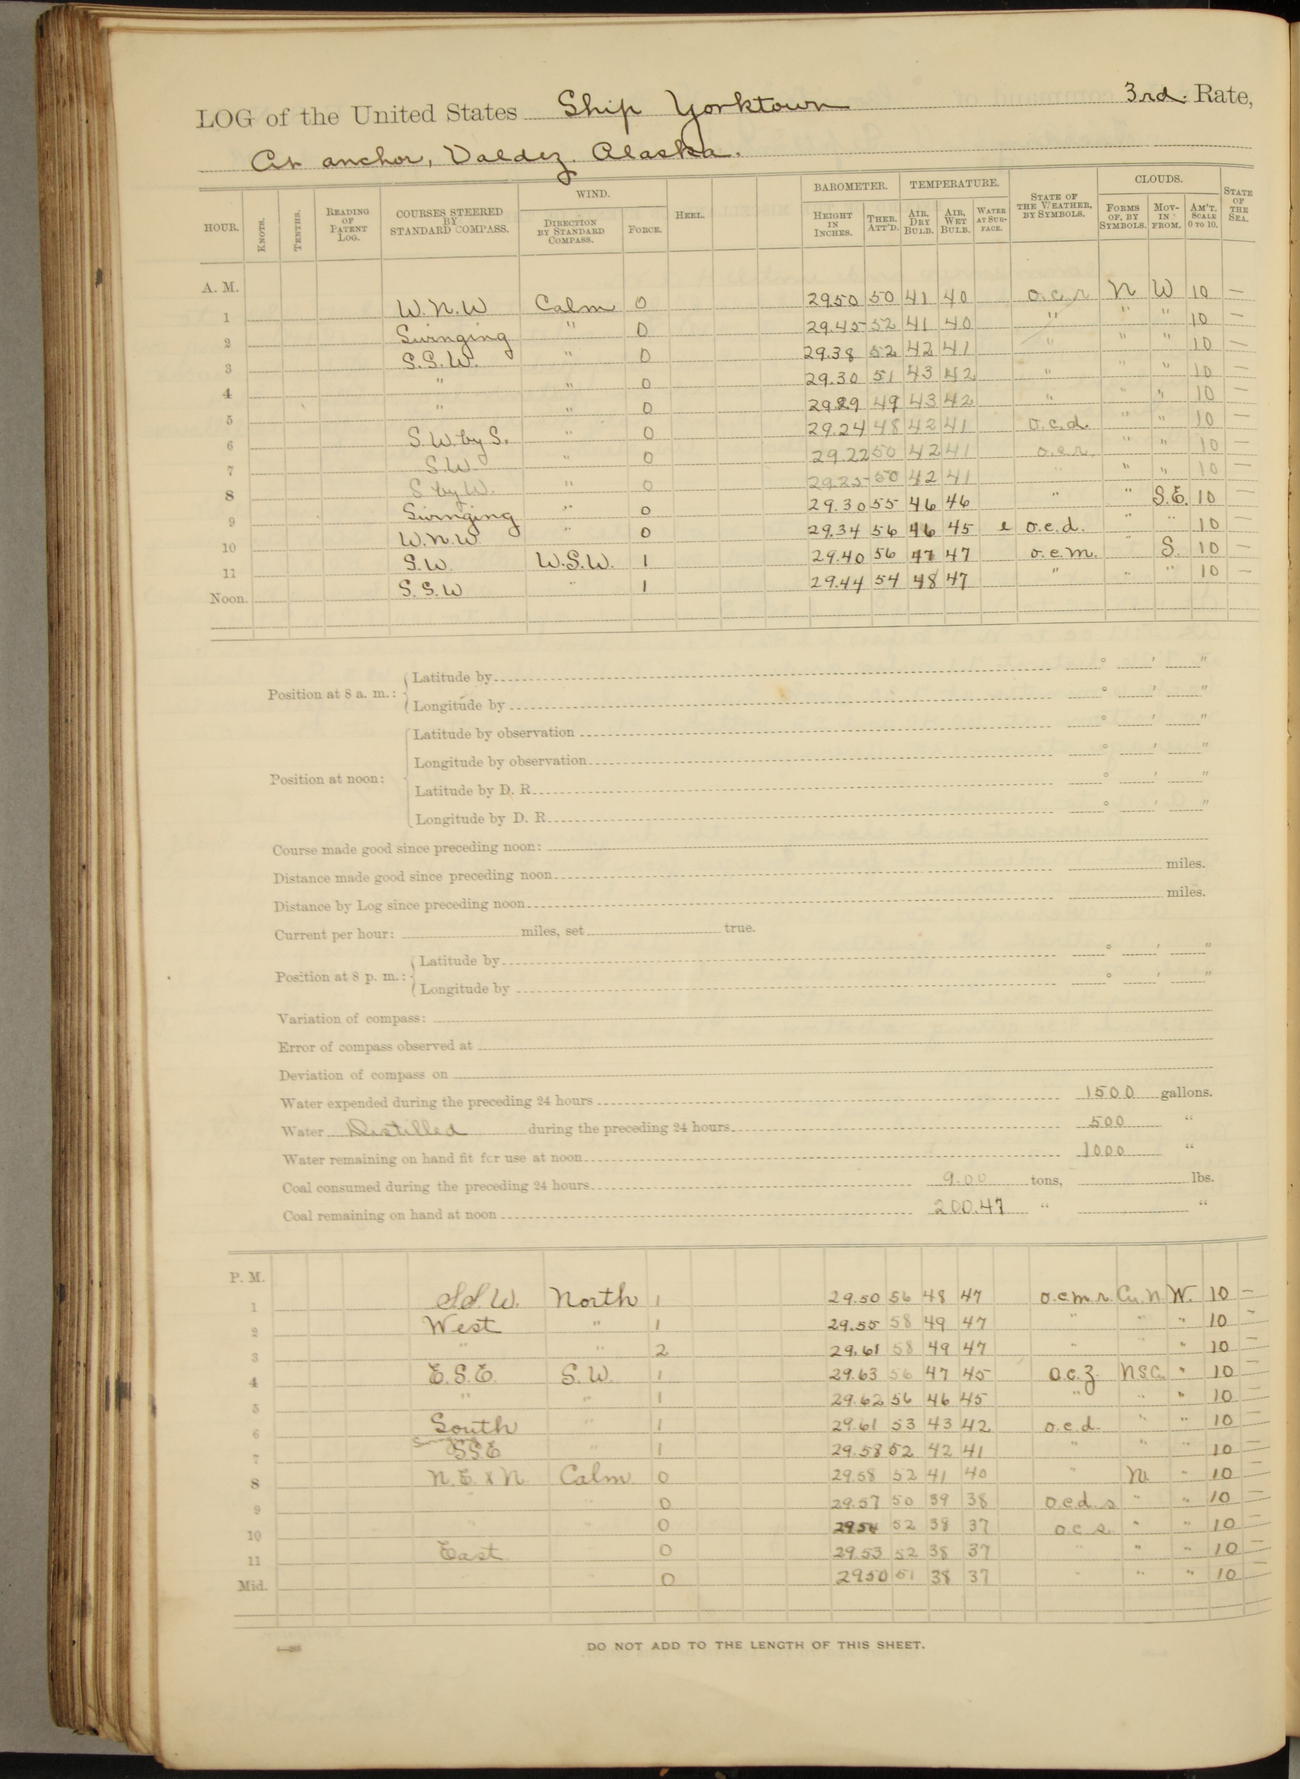 LOG of the United States Ship Yorktown 3rd Rate,
At anchor, Valdez, Alaska.
HOUR. KNOTS. TENTHS. READING OF PATENT LOG. COURSES STEERED BY STANDARD COMPASS. WIND. DIRECTION BY STANDARD COMPASS. FORCE. HEEL. BAROMETER. HEIGHT IN INCHES. THER. ATT'D. TEMPERATURE. AIR, DRY BULB. AIR, WET BULB. WATER AT SURFACE. STATE OF THE WEATHER, BY SYMBOLS. CLOUDS. FORMS OF, BY SYMBOLS. MOVING FROM. AM'T, SCALE 0 TO 10. STATE OF THE SEA.
A. M.
1 W.N.W Calm 0 29.50 50 41 40 o.c.r N W 10 —
2 Swinging " 0 29.45 52 41 40 " " " 10 —
3 S.S.W. " 0 29.38 52 42 41 " " " 10 —
4 " " 0 29.30 51 43 42 " " " 10 —
5 " " 0 29.29 49 43 42 " " " 10 —
6 S.W. by S. " 0 29.24 48 42 41 o.c.d. " " 10 —
7 S.W " 0 29.22 50 42 41 o.c.r. " " 10 —
8 S by W. " 0 29.25 50 42 41 " " " 10 —
9 Swinging " 0 29.30 55 46 46 " " S.E. 10 —
10 W.N.W " 0 29.34 56 46 45 o.c.d. " " 10 —
11 S.W. W.S.W. 1 29.40 56 47 47 o.c.m. " S. 10 —
Noon. S.S.W " 1 29.44 54 48 47 " " " 10 —
Position at 8 a. m.: Latitude by ° ' "
Longitude by ° ' "
Position at noon: Latitude by observation ° ' "
Longitude by observation ° ' "
Latitude by D. R. ° ' "
Longitude by D. R. ° ' "
Course made good since preceding noon:
Distance made good since preceding noon miles.
Distance by Log since preceding noon miles.
Current per hour: miles, set true.
Position at 8 p. m.: Latitude by ° ' "
Longitude by ° ' "
Variation of compass:
Error of compass observed at
Deviation of compass on
Water expended during the preceding 24 hours 1500 gallons.
Water Distilled during the preceding 24 hours 500 "
Water remaining on hand fit for use at noon 1000 "
Coal consumed during the preceding 24 hours 9.00 tons, lbs.
Coal remaining on hand at noon 200.47 " "
P. M.
1 S.S.W. North 1 29.50 56 48 47 o.c.m.r. Cu.N. W. 10 —
2 West " 1 29.55 58 49 47 " " " 10 —
3 " " 2 29.61 58 49 47 " " 10 —
4 E.S.E. S.W. 1 29.63 56 47 45 o.c.z. " 10 —
5 " " 1 29.62 56 46 45 " " " 10 —
6 South " 1 29.61 53 43 42 o.c.d. " " 10 —
7 SSE " 1 29.58 52 42 41 " " " 10 —
8 N.E. x N. Calm 0 29.58 52 41 40 " N. " 10 —
9 " 0 29.57 50 39 38 o.c.d.s " " 10 —
10 " " 0 29.54 52 38 37 o.c.s. " " 10 —
11 East 0 29.53 52 38 37 " " " 10 —
Mid. " 0 29.50 51 38 37 " " " 10 —
DO NOT ADD TO THE LENGTH OF THIS SHEET.